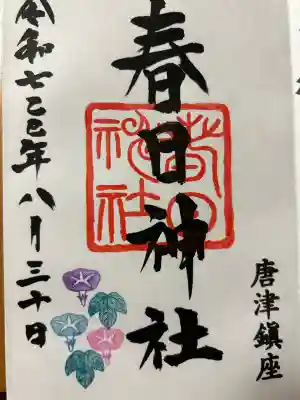 唐津鎮座
春日神社
春日神社
令和七乙巳年八月三十日